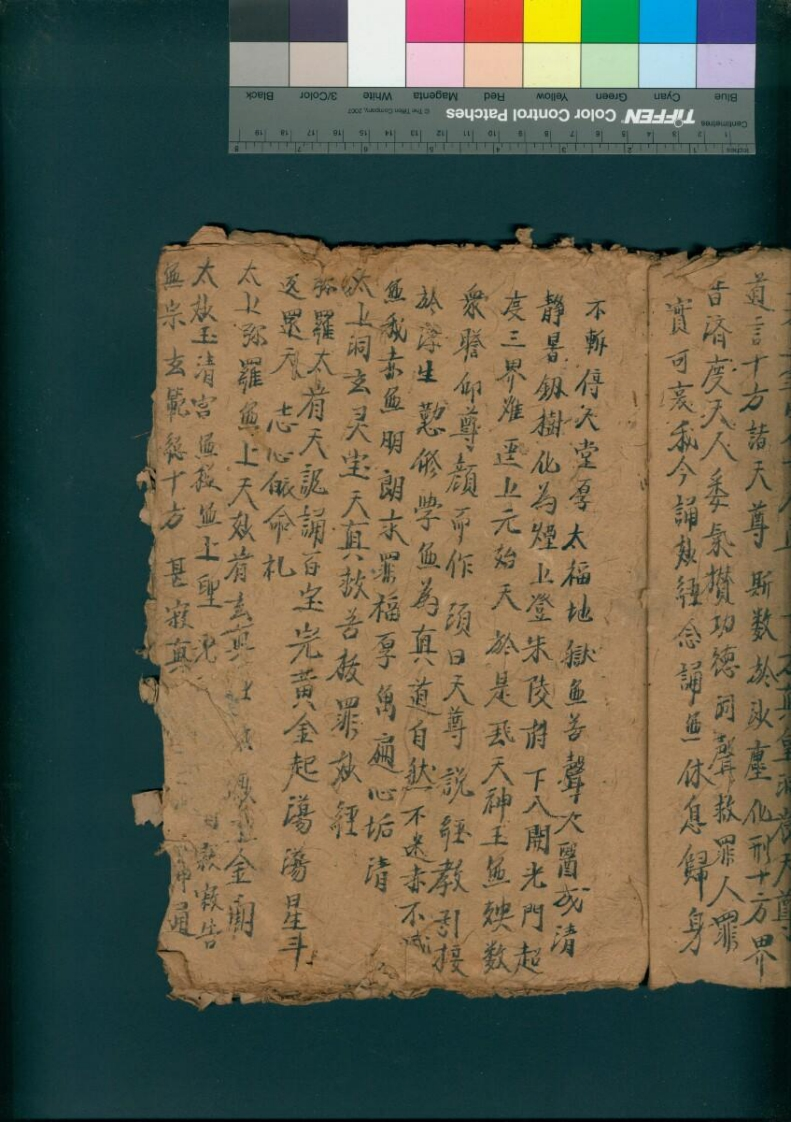 道言十方諸天尊 斯数於沙塵化刑十方界
昔済度天人委氣攅功德同聲救罪人罪
實可哀我今誦救経念誦無休息歸身
不斬停天堂享太福地獄無苦聲火醫成清
静暑釼樹化為煙上登朱陵府 下入開光門超
度三界难 逕上元始天 於是飛天神王無鞅数
衆瞻仰尊顔而作 頌曰天尊 説経教引接
於浮生懃修學無為真道自然不迷亦不惑
無我亦無明朗求罪福享萬遍心垢清
太上洞玄灵宝天真救苦拔罪妙経
弥羅太有天詔誦百宝光黄金起蕩蕩星斗
返還天 志心皈命礼
太上弥羅無上天妙有玄真 金闕
太妙玉清宫無極無上聖 寂告
無宗玄範総十方 甚寂真
Blue Cyan Green Yellow Red Magenta White 3/Color Black
TIFFEN Color Control Patches
© The Tiffen Company, 2007
Centimetres 1 2 3 4 5 6 7 8 9 10 11 12 13 14 15 16 17 18 19
Inches 1 2 3 4 5 6 7 8